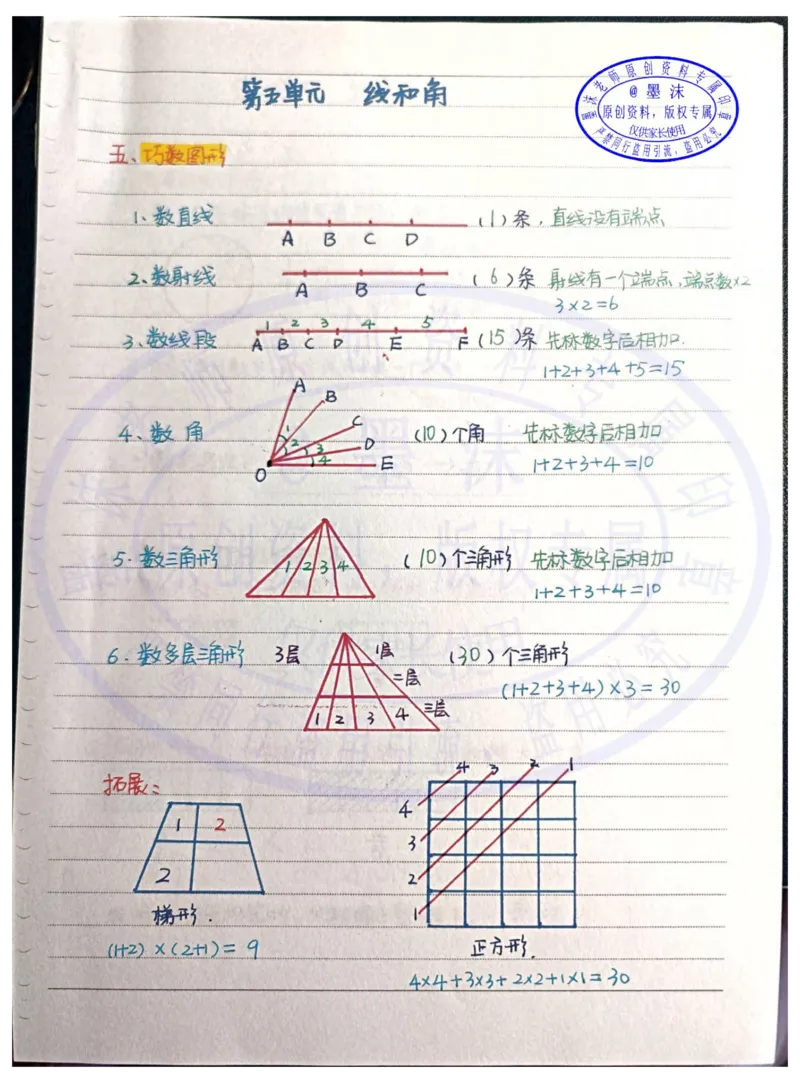 第五单元 线和角
墨沫老师原创资料专属印章
@墨沫
原创资料，版权专属
仅供家长使用
严禁同行盗用引流，盗用必究
五、巧数图形
1、数直线 A B C D （1）条，直线没有端点
2、数射线 A B C （6）条 射线有一个端点，端点数×2
3×2=6
3、数线段 1 2 3 4 5 A B C D E F （15）条 先标数字后相加.
1+2+3+4+5=15
4、数角 A B C D E O 1 2 3 4 （10）个角 先标数字后相加
1+2+3+4=10
5.数三角形 1 2 3 4 （10）个三角形 先标数字后相加
1+2+3+4=10
6.数多层三角形 3层 1层 二层 三层 1 2 3 4 （30）个三角形
(1+2+3+4)×3=30
拓展：
1 2
2
梯形.
(1+2)×(2+1)=9
4 3 2 1
4
3
2
1
正方形.
4×4+3×3+2×2+1×1=30